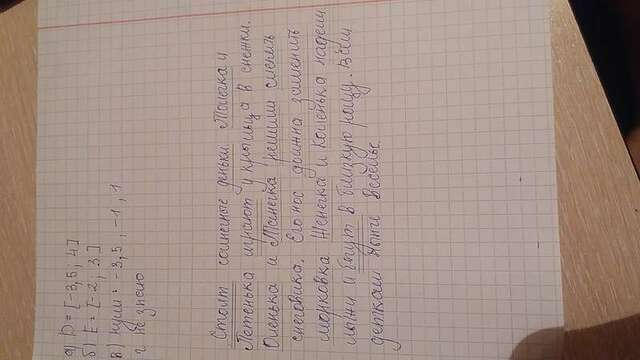 а) D = [-3,5; 4]
б) E = [-2; 3]
в) нули = -3,5; -1; 1
г не знаю
Стоят солнечные деньки. Толечка и
Петенька играют у крыльца в снежки.
Оленька и Танечка решили слепить
снеговика. Его нос должна заменить
морковка. Женечка и Коленька надели
лыжи и бегут в близкую рощу. Всем
деткам нынче веселье.